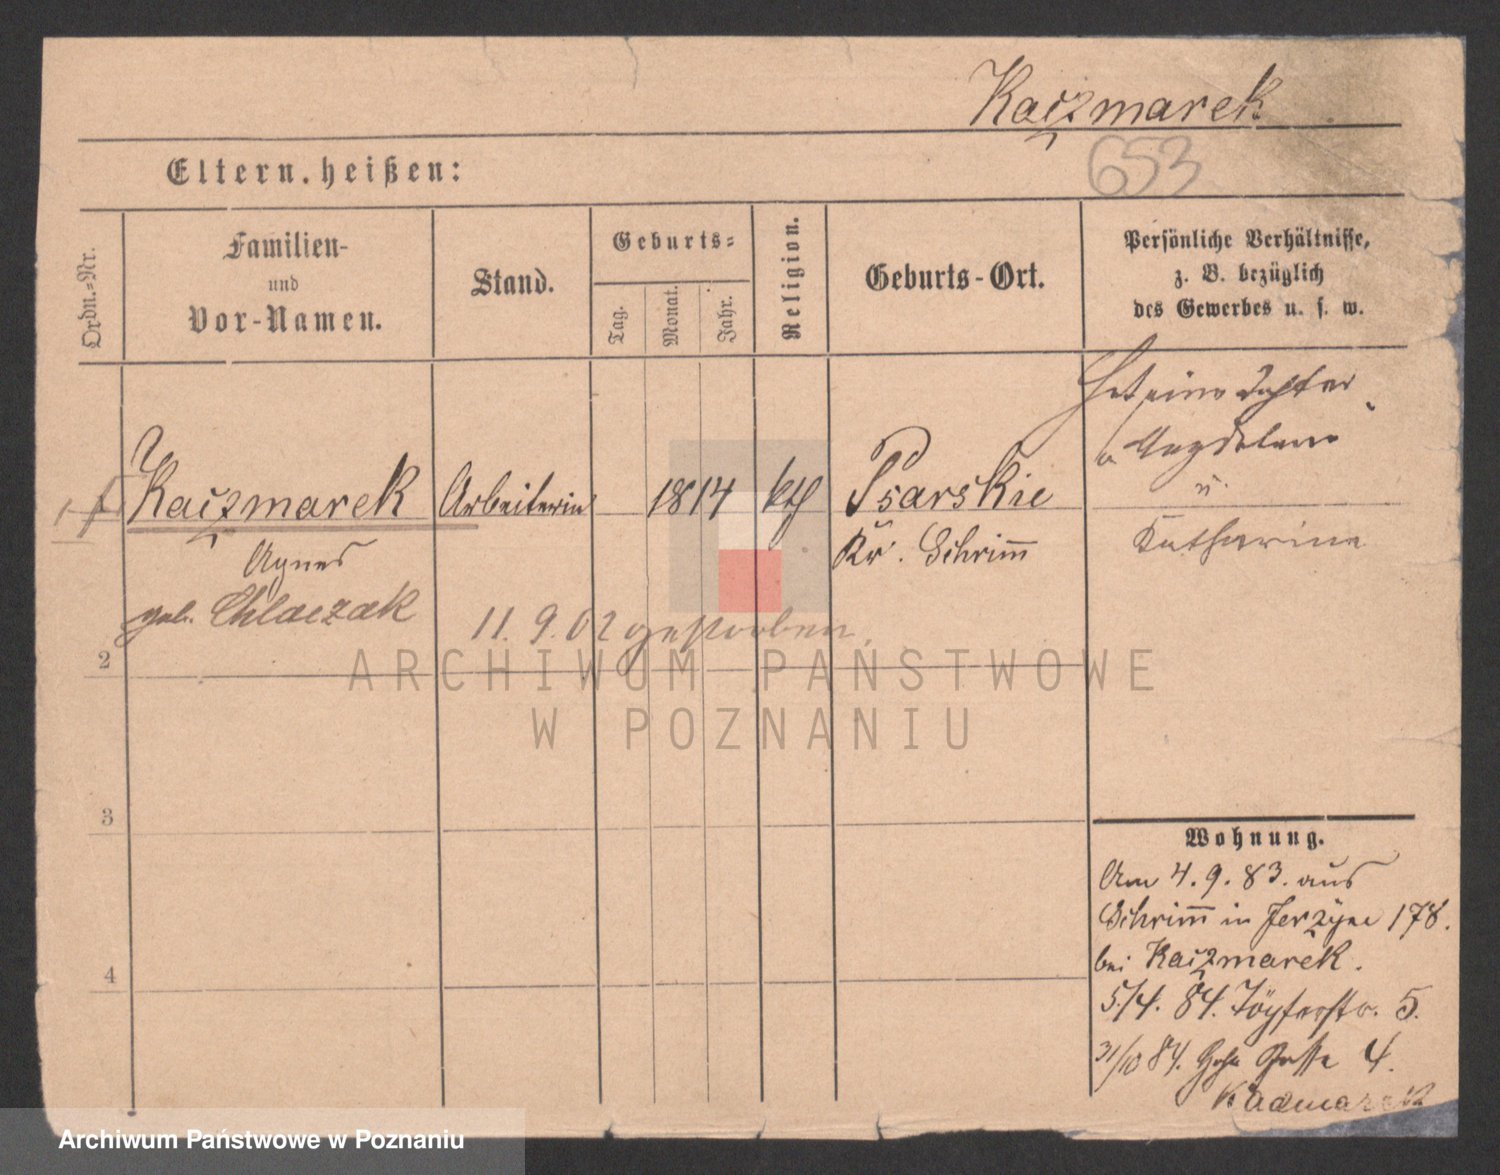 Kaczmarek
653
Eltern heißen:
Ordn.-Nr.
Familien-
und
Vor-Namen.
Stand.
Geburts-
Tag.
Monat.
Jahr.
Religion.
Geburts-Ort.
Persönliche Verhältnisse,
z. B. bezüglich
des Gewerbes u. s. w.
Hat eine Tochter
Magdalena
u.
Katharina
1
Kaczmarek
Agnes
geb. Chlaczak
Arbeiterin
1814
kth
Psarskie
Kr. Schrimm
11. 9. 02 gestorben.
2
3
4
ARCHIWUM PAŃSTWOWE
W POZNANIU
Wohnung.
Am 4. 9. 83. aus
Schrimm in Jerzyce 178.
bei Kaczmarek.
5/4. 84. Töpferstr. 5.
31/10 84. Hohe Gasse 4.
Kaczmarek
Archiwum Państwowe w Poznaniu